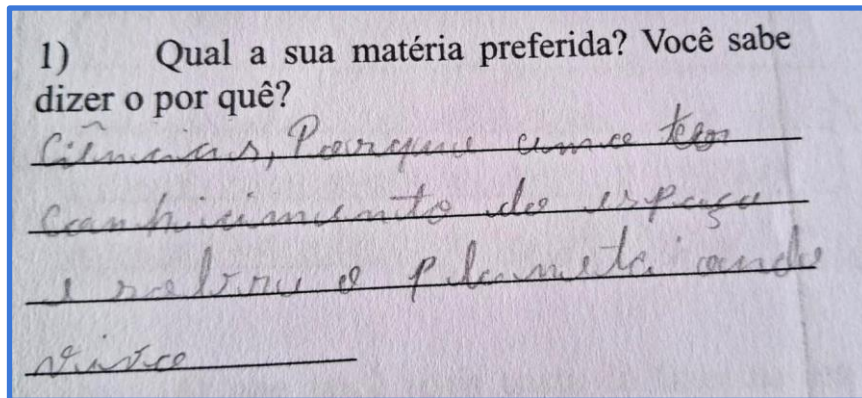 1) Qual a sua matéria preferida? Você sabe
dizer o por quê?
Ciências, Porque amo ter
conhecimento do espaço
e sobre o planeta onde
vivo